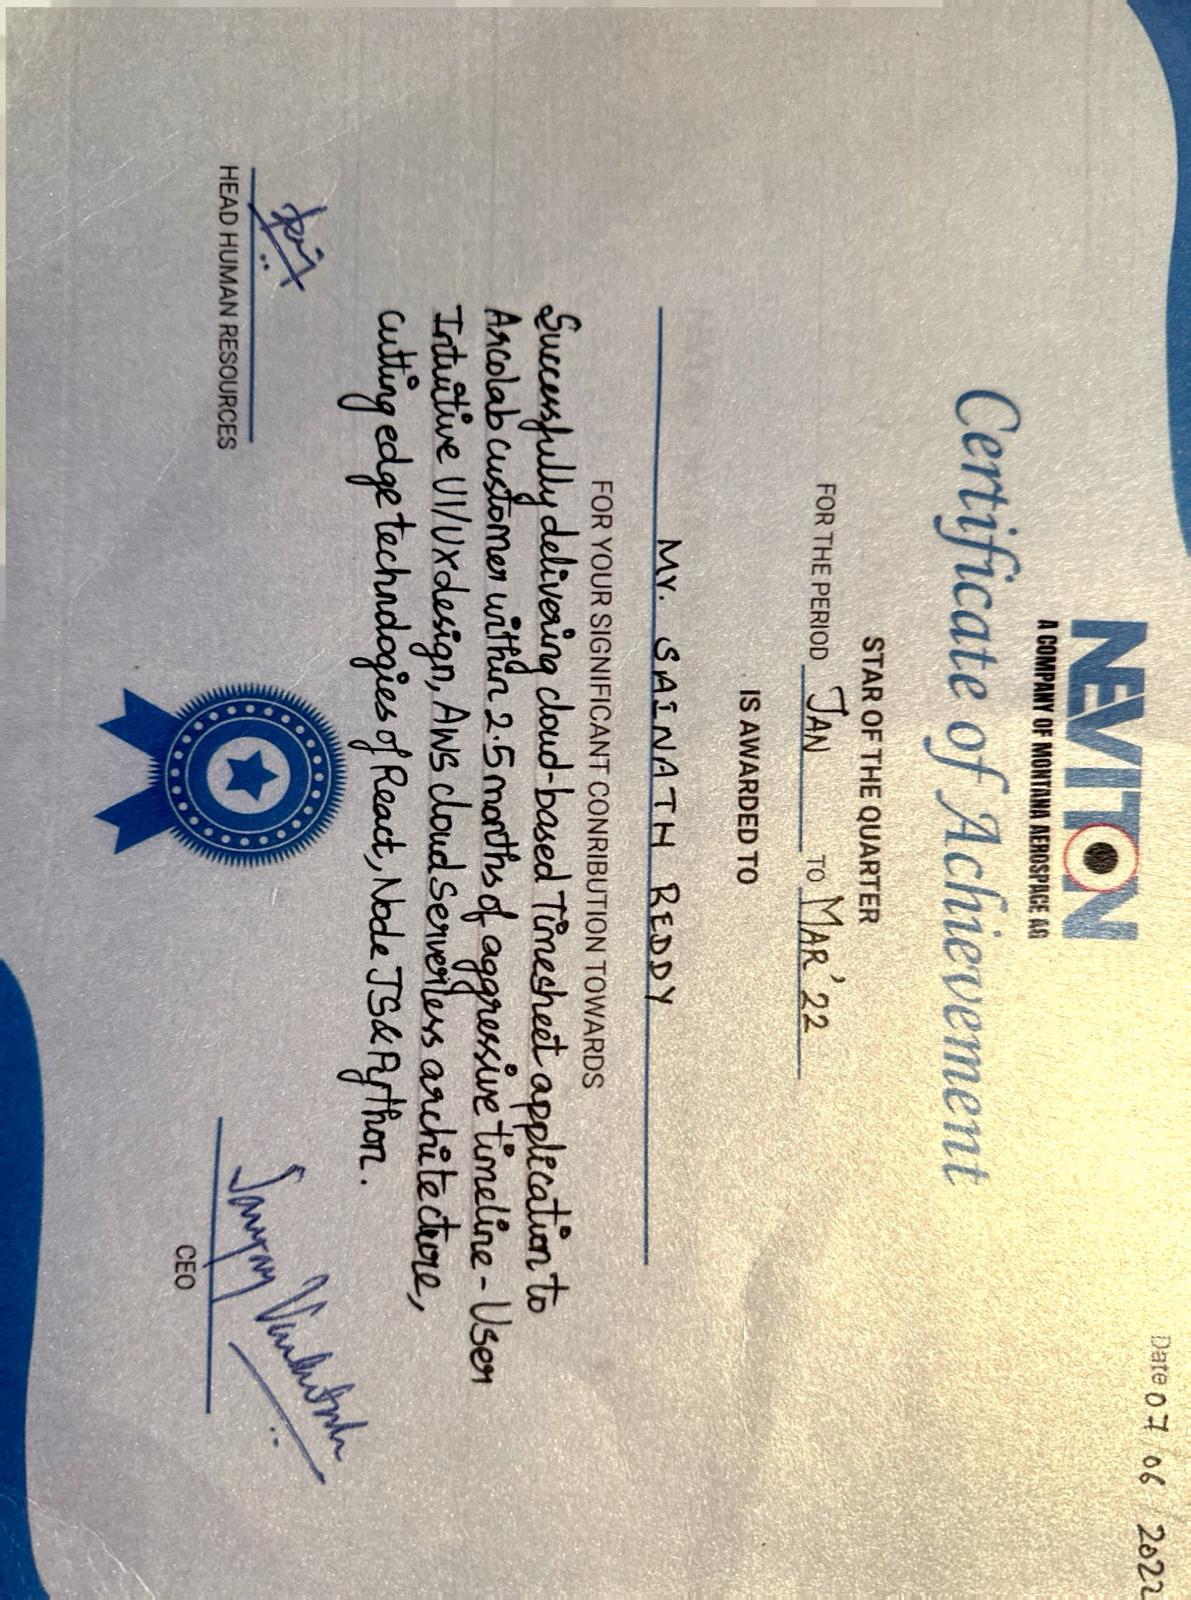 Date 07 06 2022
NEVITON
A COMPANY OF MONTANA AEROSPACE AG
Certificate of Achievement
STAR OF THE QUARTER
FOR THE PERIOD JAN TO MAR'22
IS AWARDED TO
Mr. SAINATH REDDY
FOR YOUR SIGNIFICANT CONRIBUTION TOWARDS
Successfully delivering cloud-based Timesheet application to
Arcolab customer within 2.5 months of aggressive timeline - User
Intuitive UI/UX design, AWS cloud Serverless architecture,
cutting edge technologies of React, Node JS & Python.
HEAD HUMAN RESOURCES
CEO